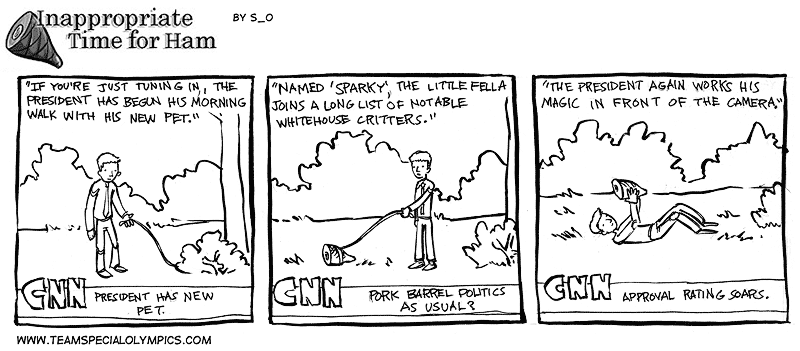 Inappropriate
Time for Ham
BY S_O
"IF YOU'RE JUST TUNING IN, THE
PRESIDENT HAS BEGUN HIS MORNING
WALK WITH HIS NEW PET."
CNN
PRESIDENT HAS NEW
PET.
"NAMED 'SPARKY', THE LITTLE FELLA
JOINS A LONG LIST OF NOTABLE
WHITEHOUSE CRITTERS."
CNN
PORK BARREL POLITICS
AS USUAL?
"THE PRESIDENT AGAIN WORKS HIS
MAGIC IN FRONT OF THE CAMERA."
CNN
APPROVAL RATING SOARS.
WWW.TEAMSPECIALOLYMPICS.COM